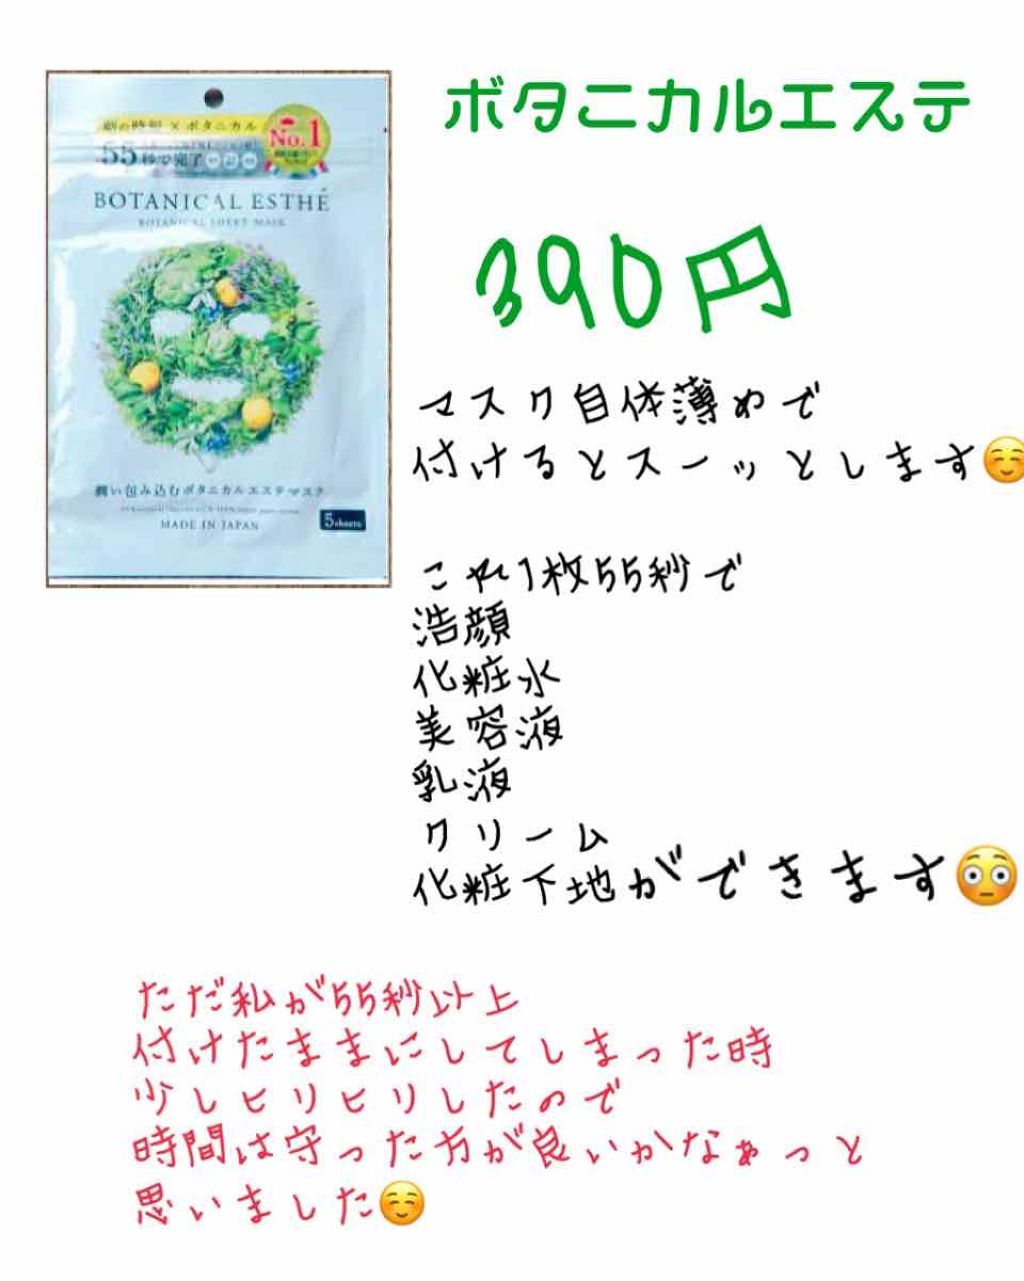 ボタニカルエステ
390円
朝の時短×ボタニカル
No.1
55秒で完了
BOTANICAL ESTHÉ
BOTANICAL SHEET MASK
潤い包み込むボタニカルエステマスク
MADE IN JAPAN
5sheets
マスク自体薄めで
付けるとスーッとします☺️
これ1枚55秒で
洗顔
化粧水
美容液
乳液
クリーム
化粧下地ができます😳
ただ私が55秒以上
付けたままにしてしまった時
少しヒリヒリしたので
時間は守った方が良いかなぁっと
思いました☺️